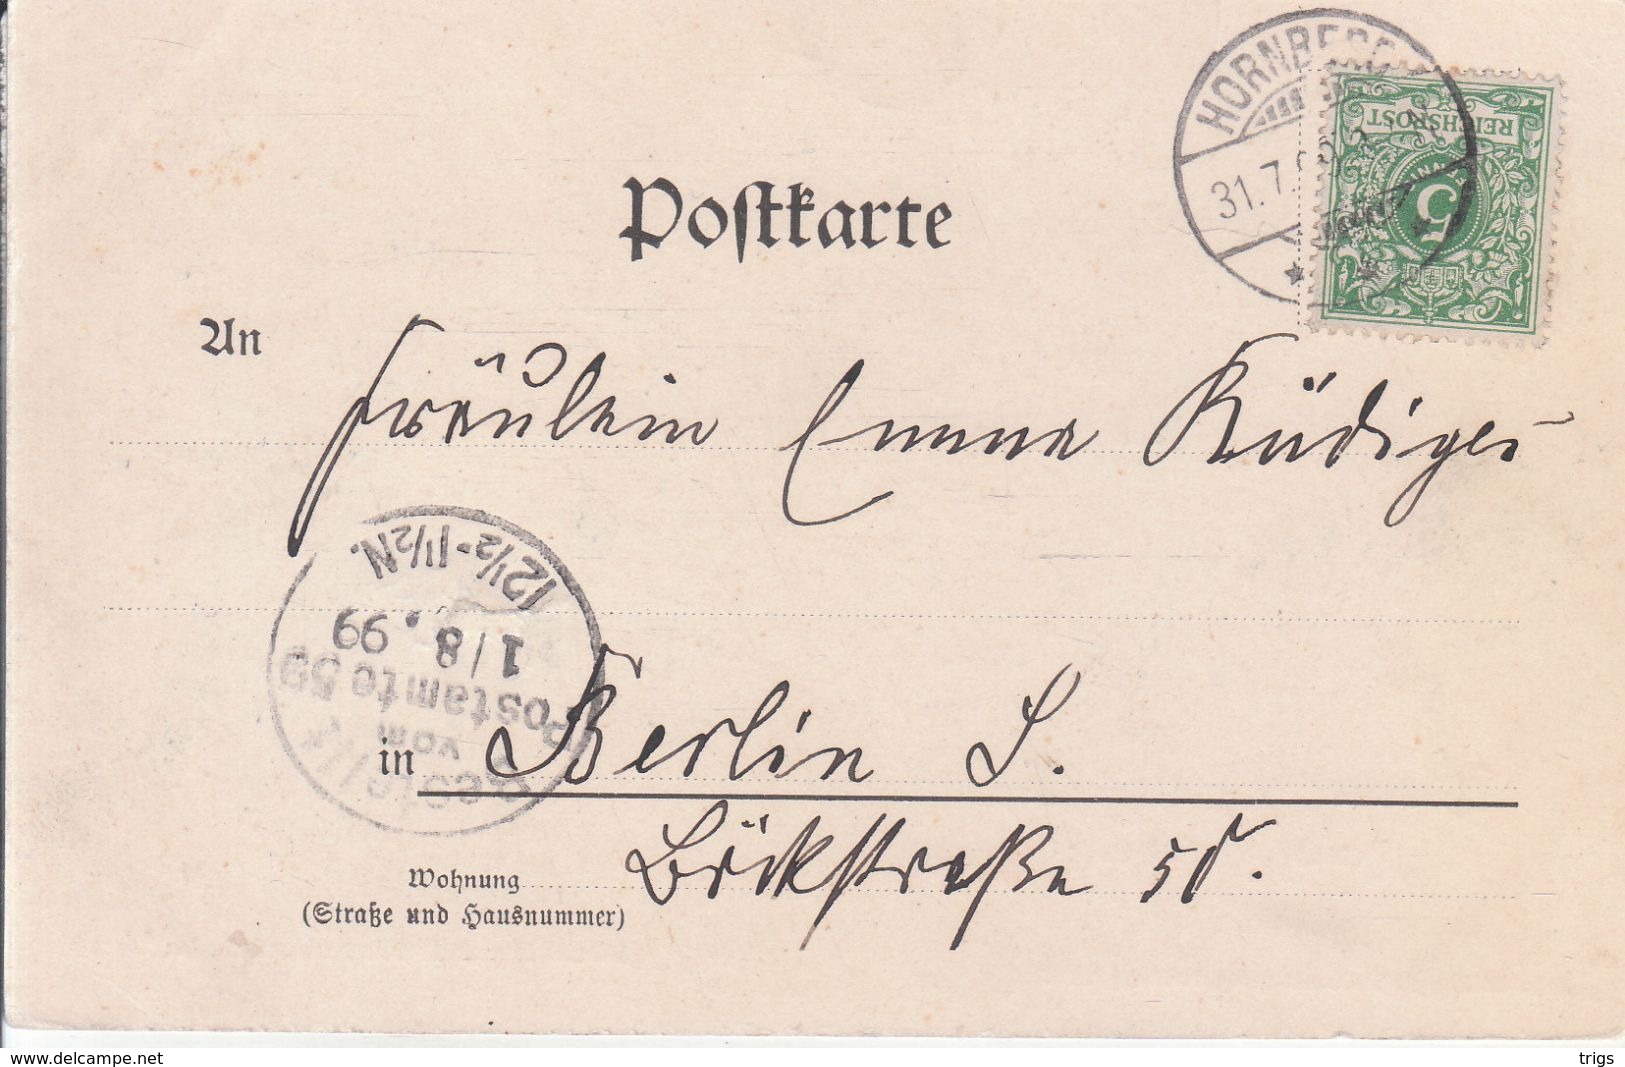 HORNBERG
31.7.
REICHSPOST
5
Postkarte
An
Fräulein Emma Rüdiger
12½-1½N.
1/8.99
Bestellt
vom
Postamte 59
in Berlin S.
Böckstraße
Wohnung
(Straße und Hausnummer)
www.delcampe.net
trigs